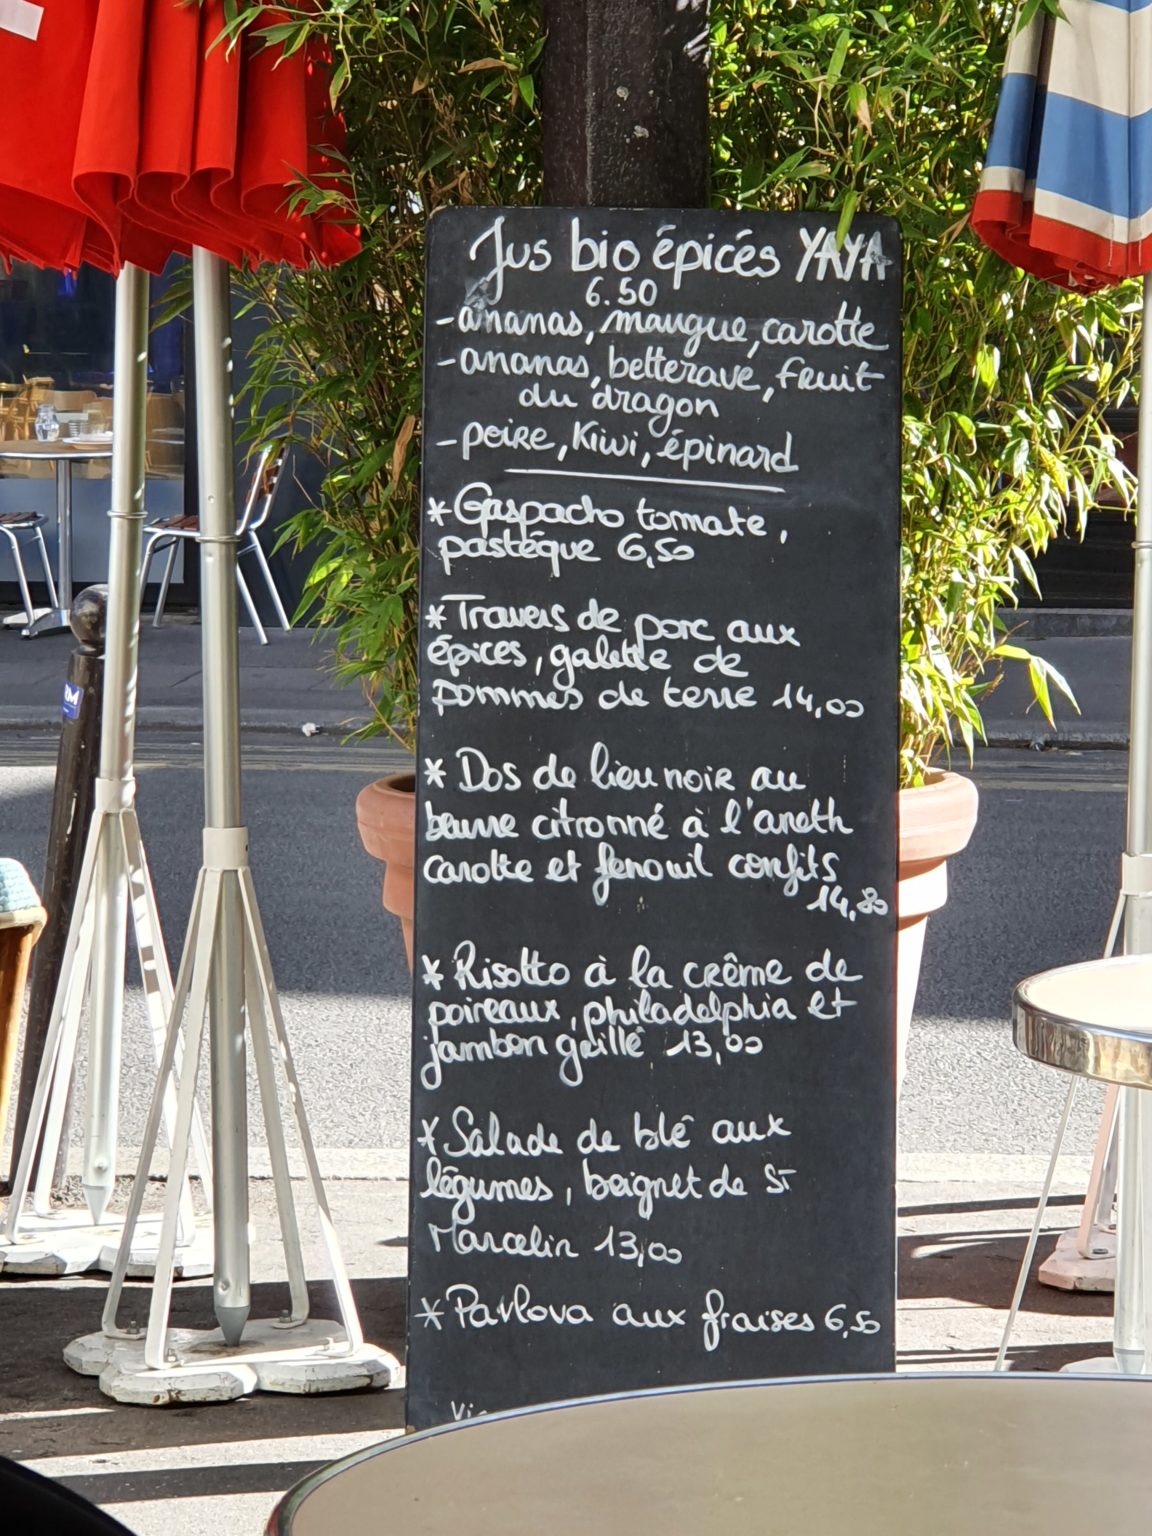 Jus bio épicés YAYA
6.50
-ananas, mangue, carotte
-ananas, betterave, fruit
du dragon
-poire, Kiwi, épinard
*Gaspacho tomate,
pastèque 6,50
*Travers de porc aux
épices, galette de
pommes de terre 14,00
* Dos de lieu noir au
beurre citronné à l'aneth
carotte et fenouil confits
14,80
* Risotto à la crème de
poireaux, philadelphia et
jambon grillé 13,00
*Salade de blé aux
légumes, beignet de St
Marcelin 13,00
*Pavlova aux fraises 6,50